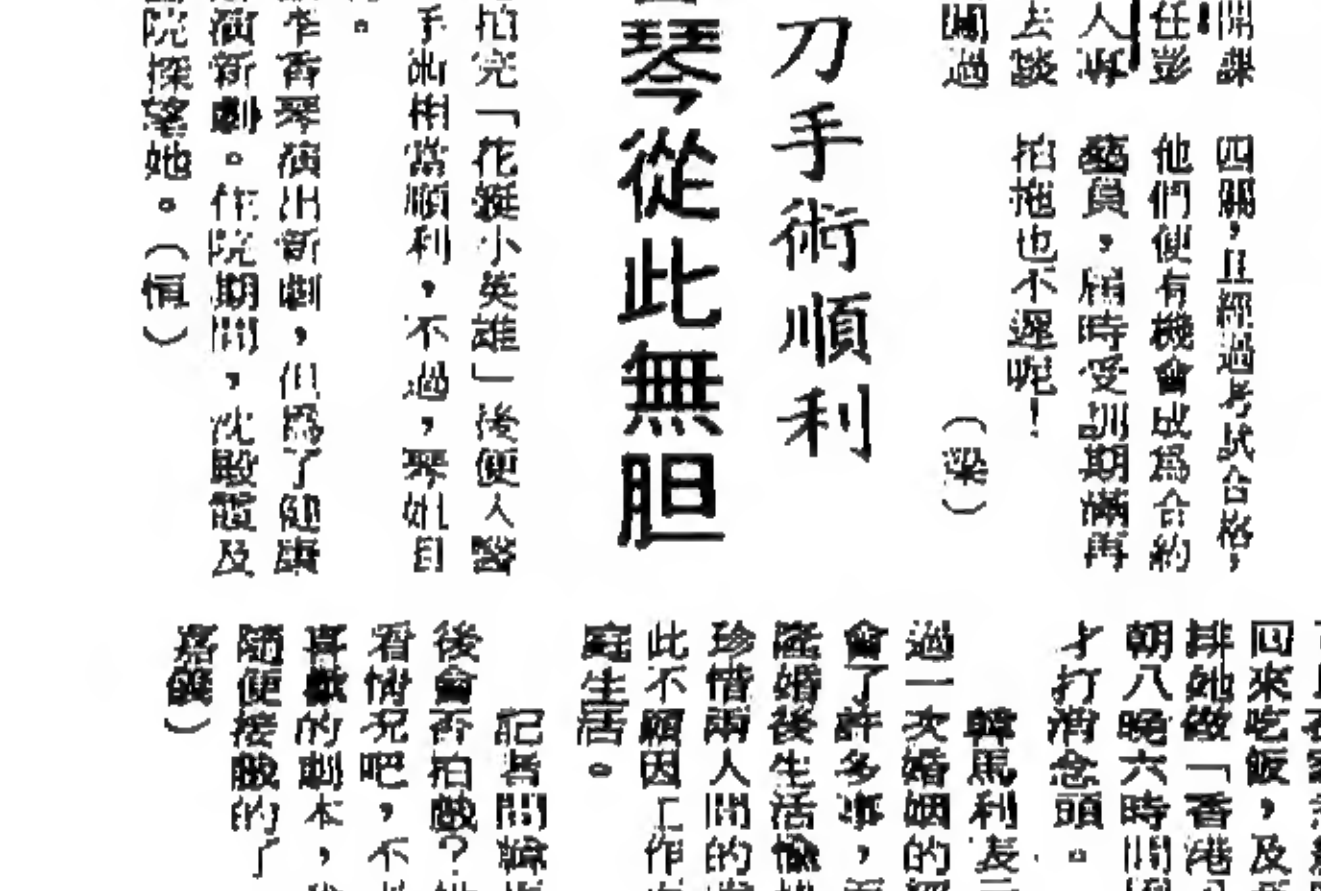 開課
任彭
人再
去談
過
四關，且經過考試合格，
他們便有機會成爲合約
藝員，屆時受訓期滿再
拍拖也不遲呢！
（梁）
刀手術順利
琴從此無胆
拍完「花艇小英雄」後便入醫
手術相當順利，不過，琴姐目
。
乍香琴演出新劇，但爲了健康
演新劇。住院期間，沈殿霞及
院探望她。（恒）
回來吃飯，及
排她做「香港
朝八晚六時間
才打消念頭。
韓馬利表示
過一次婚姻的
會了許多事，
婚後生活愉
珍惜兩人間的
此不願因工作
庭生活。
記者問韓
後會否拍戲？她
看情况吧，不
喜歡的劇本，
隨便接戲的了
嘉儀）